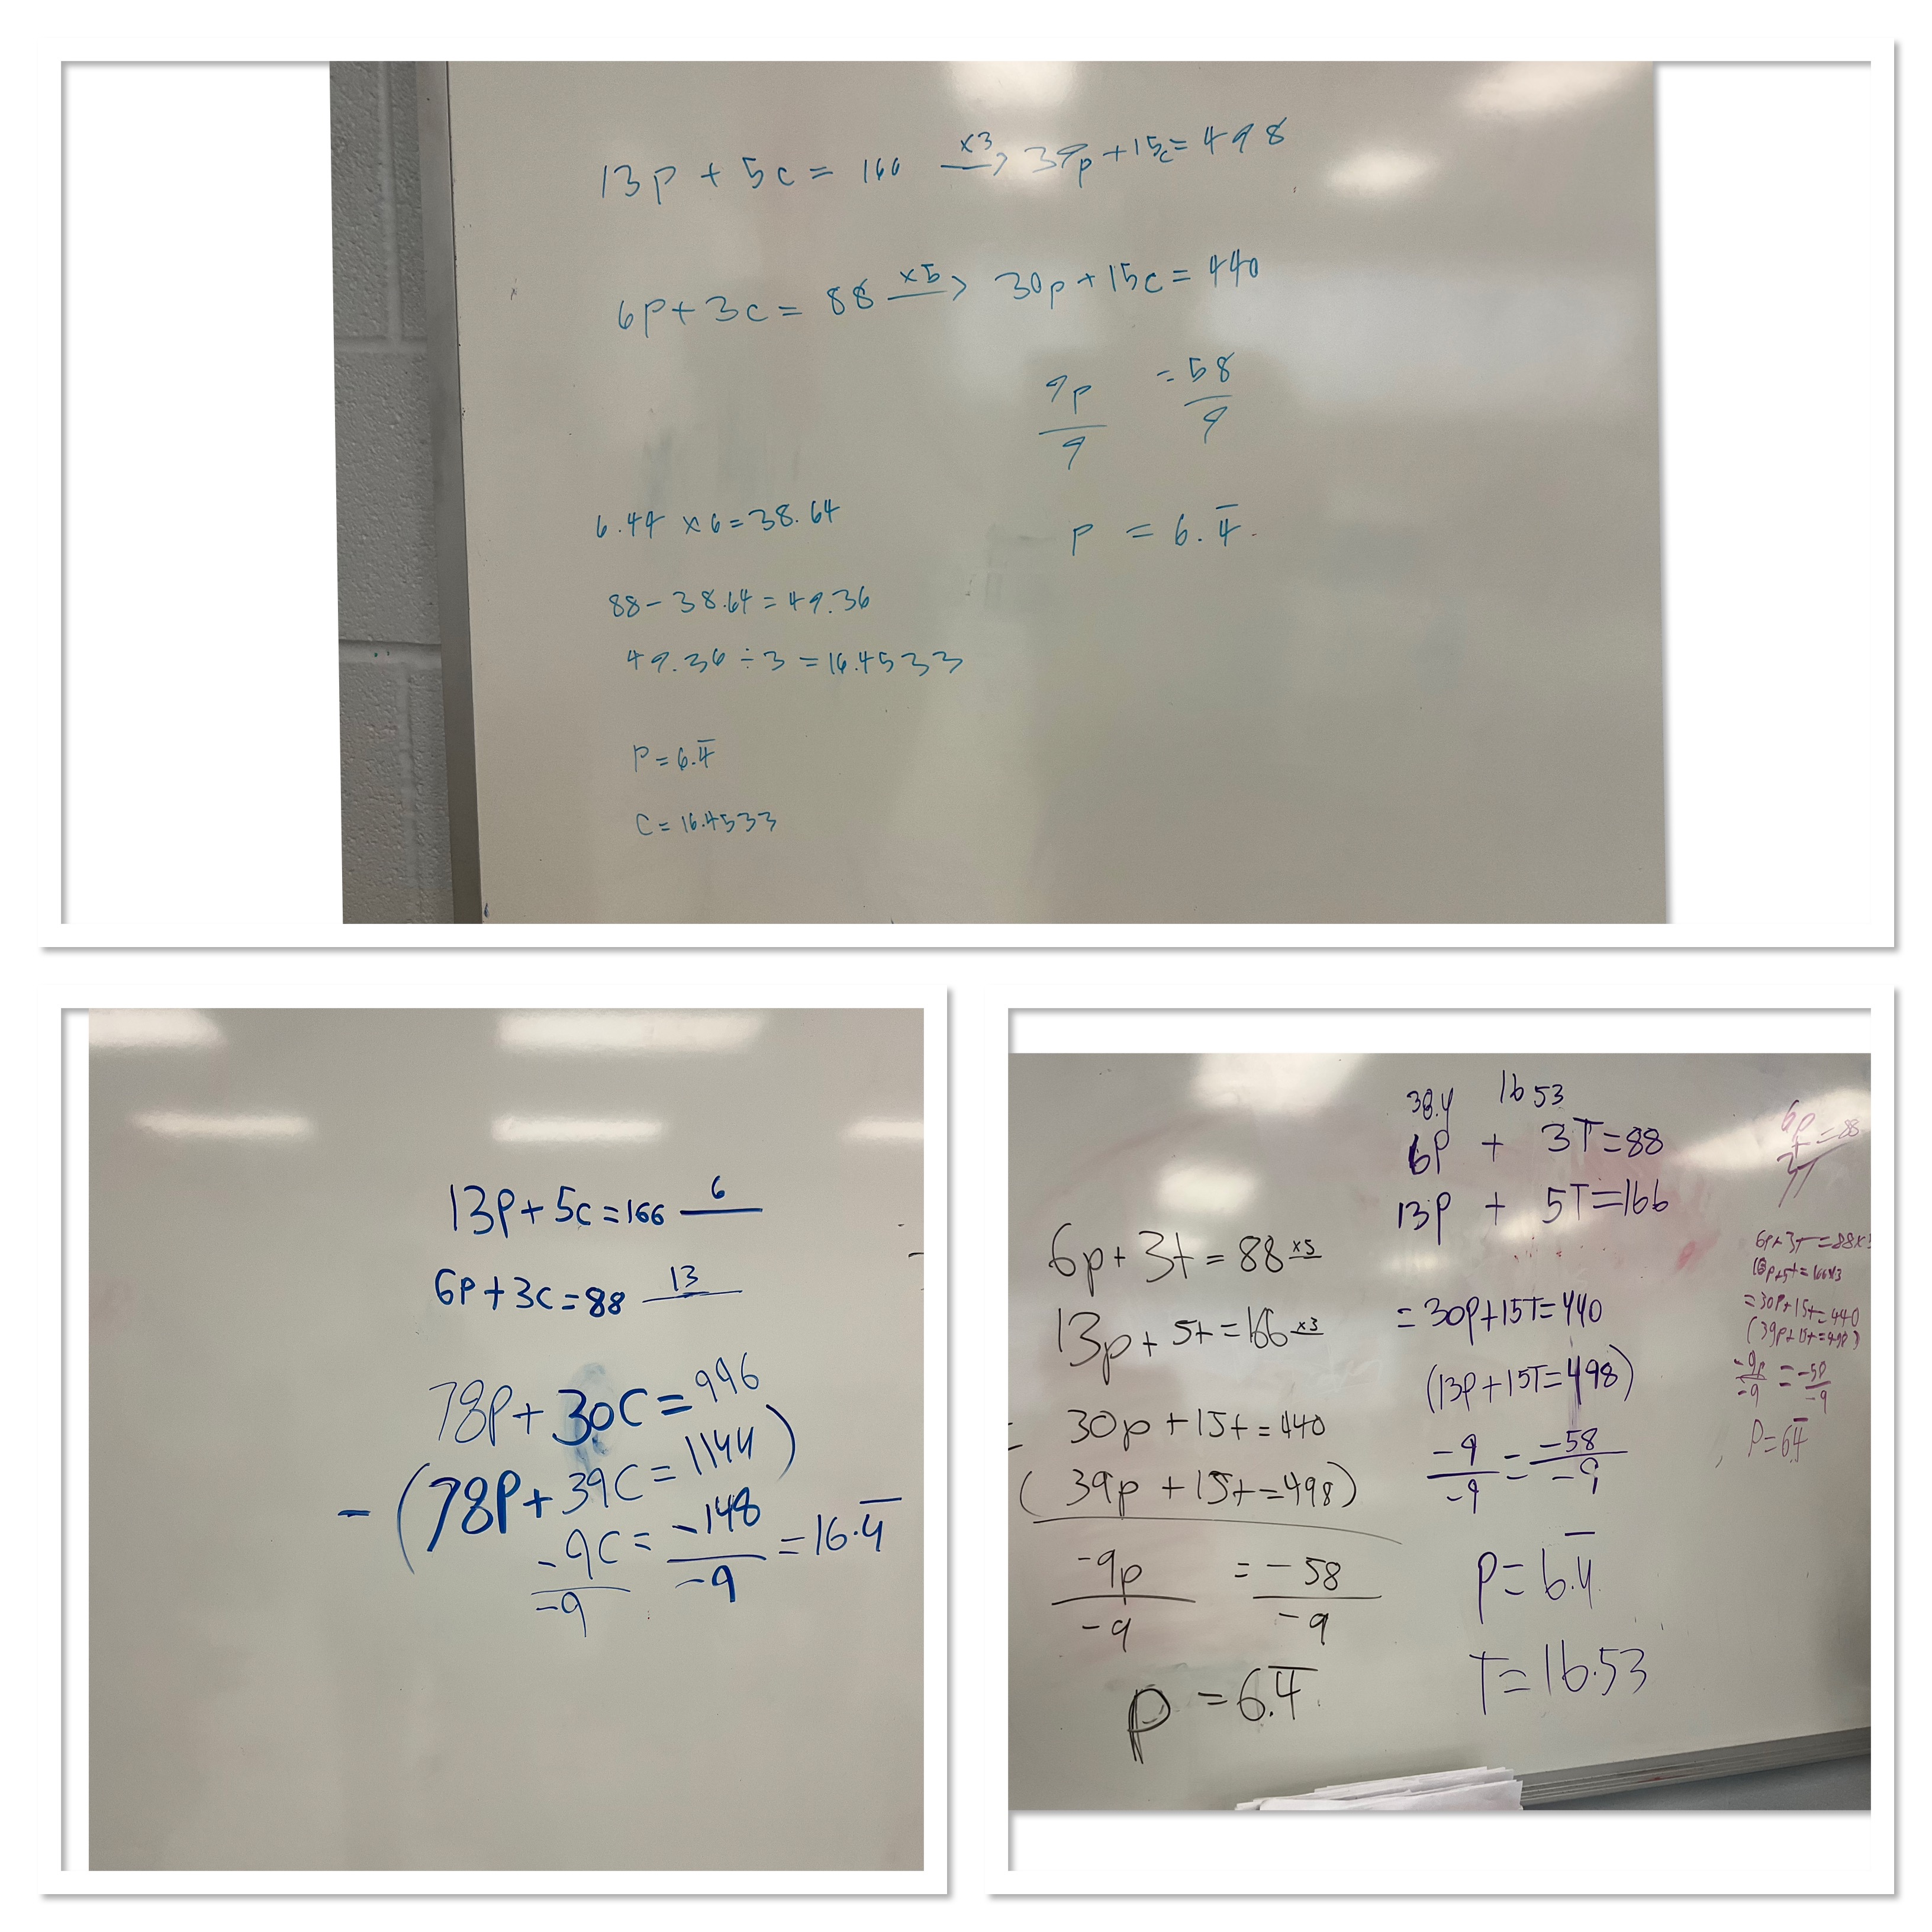 13p + 5c = 166 ×3→ 39p + 15c = 498
6p + 3c = 88 ×5→ 30p + 15c = 440
9p/9 = 58/9
p = 6.4̅
6.44 × 6 = 38.64
88 - 38.64 = 49.36
49.36 ÷ 3 = 16.4533
P = 6.4̅
C = 16.4533
13P + 5C = 166 6
6P + 3C = 88 13
78P + 30C = 996
-(78P + 39C = 1144)
-9C/-9 = -148/-9 = 16.4̅
6p + 3t = 88 ×5
13p + 5t = 166 ×3
= 30p + 15t = 440
(39p + 15t = 498)
-9p/-9 = -58/-9
p = 6.4̅
38.4 16 53
6P + 3T = 88
13P + 5T = 166
= 30P + 15T = 440
(13P + 15T = 498)
-9/-9 = -58/-9
P = 6.4̅
T = 16.53
6P + 3T = 88
6p + 3t = 88×
= 30p + 15t = 440
(39p + 15t = 498)
-9p/-9 = -58/-9
P = 6.4̅